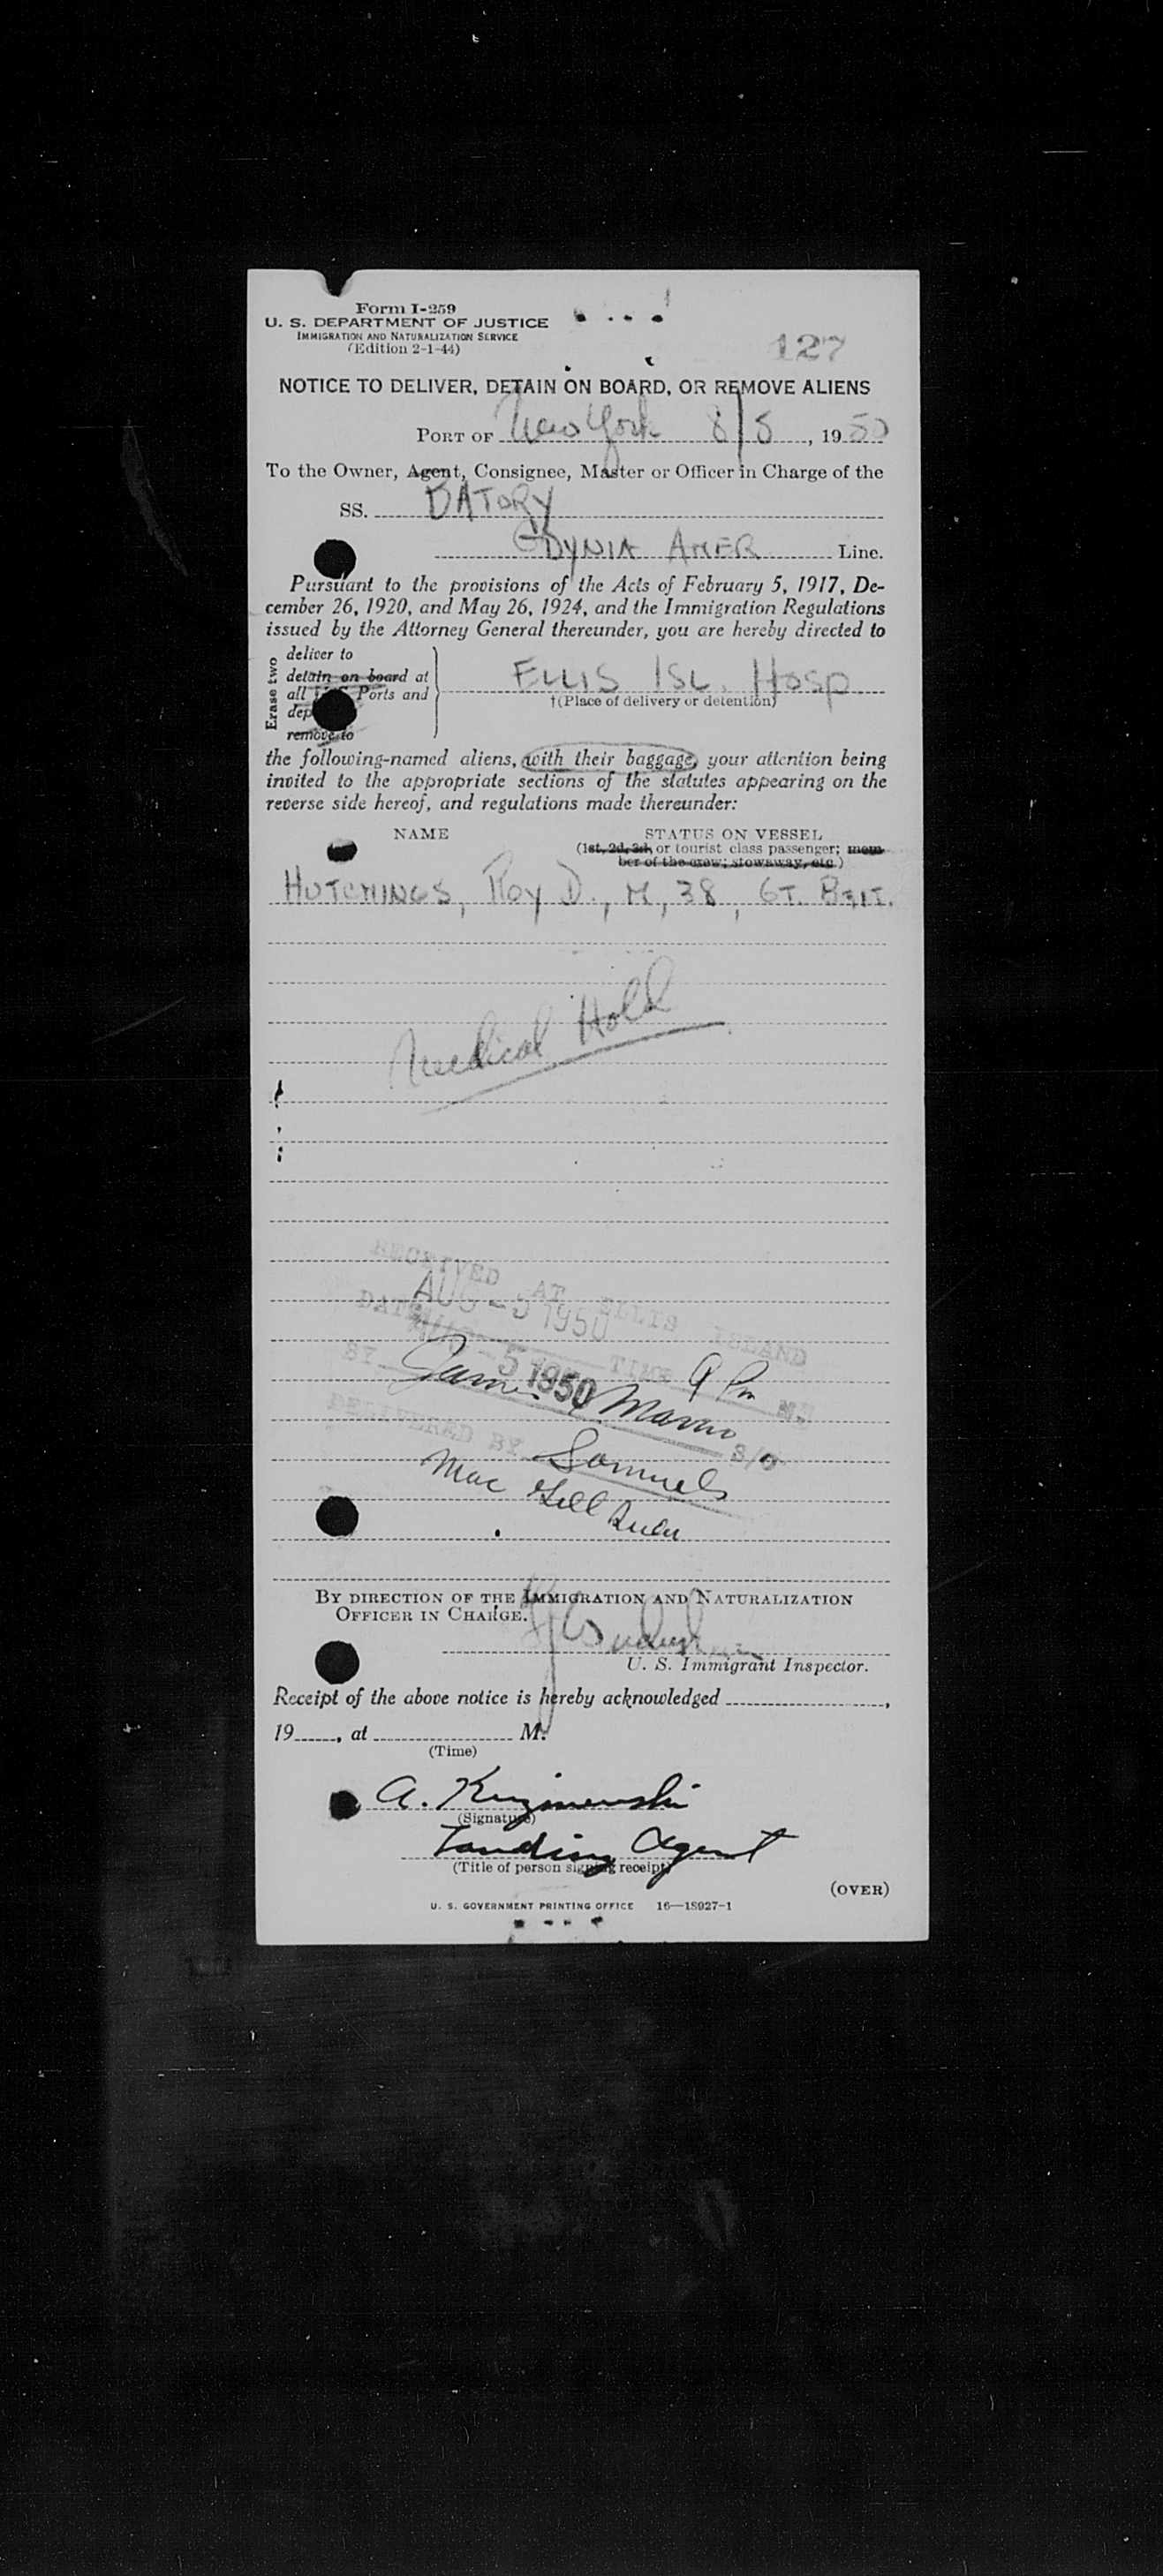 Form I-259
U. S. DEPARTMENT OF JUSTICE
IMMIGRATION AND NATURALIZATION SERVICE
(Edition 2-1-44)
127
NOTICE TO DELIVER, DETAIN ON BOARD, OR REMOVE ALIENS
PORT OF New York 8/5, 1950
To the Owner, Agent, Consignee, Master or Officer in Charge of the
SS. BATORY
GDYNIA AMER. Line.
Pursuant to the provisions of the Acts of February 5, 1917, De-
cember 26, 1920, and May 26, 1924, and the Immigration Regulations
issued by the Attorney General thereunder, you are hereby directed to
Erase two
deliver to
detain on board at
all Ports and
remove to
ELLIS ISL. HOSP.
†(Place of delivery or detention)
the following-named aliens, with their baggage, your attention being
invited to the appropriate sections of the statutes appearing on the
reverse side hereof, and regulations made thereunder:
NAME STATUS ON VESSEL
(1st, 2d, 3d, or tourist class passenger; mem-
ber of the crew; stowaway, etc.)
HUTCHINGS, ROY D., M, 38, GT. BRIT.
Medical Hold
RECEIVED AT ELLIS ISLAND
AUG - 5 1950
DATE AUG - 5 1950 TIME 9 Pm
BY James
DELIVERED BY Samuels
BY DIRECTION OF THE IMMIGRATION AND NATURALIZATION
OFFICER IN CHARGE.
U. S. Immigrant Inspector.
Receipt of the above notice is hereby acknowledged ,
19 , at M.
(Time)
A.
(Signature)
Landing Agent
(Title of person signing receipt)
(OVER)
U. S. GOVERNMENT PRINTING OFFICE 16—18927-1